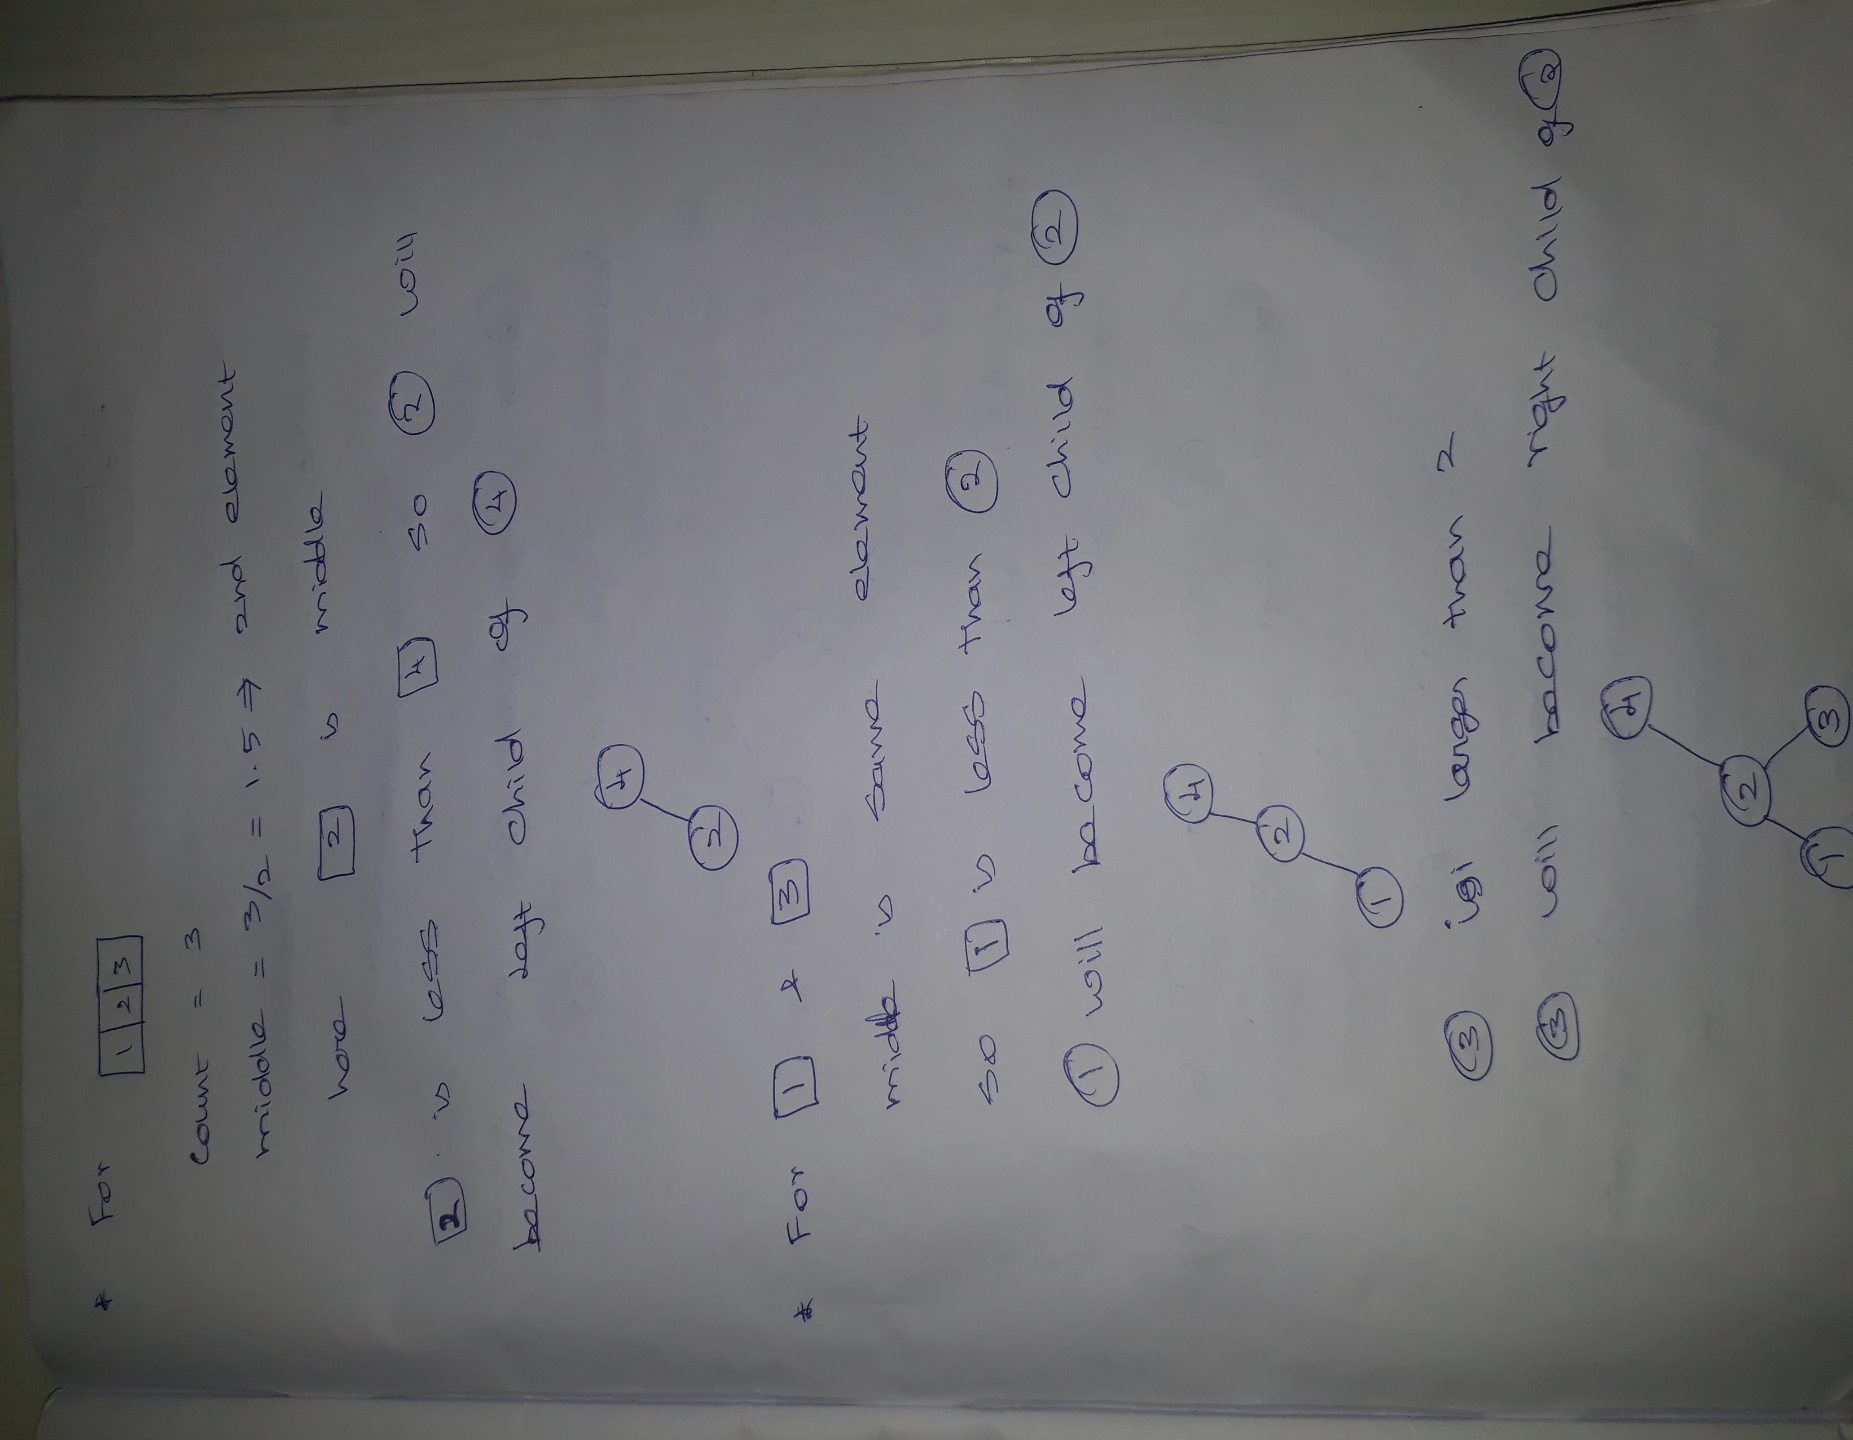 * For 1 2 3
Count = 3
middle = 3/2 = 1.5 ⇒ 2nd element
here 2 is middle
2 is less than 4 so 2 will
become left child of 4
4
2
* For 1 & 3
middle is same element
so 1 is less than 2
1 will become left child of 2
4
2
1
3 is larger than 2
3 will become right child of 2
4
2
1 3